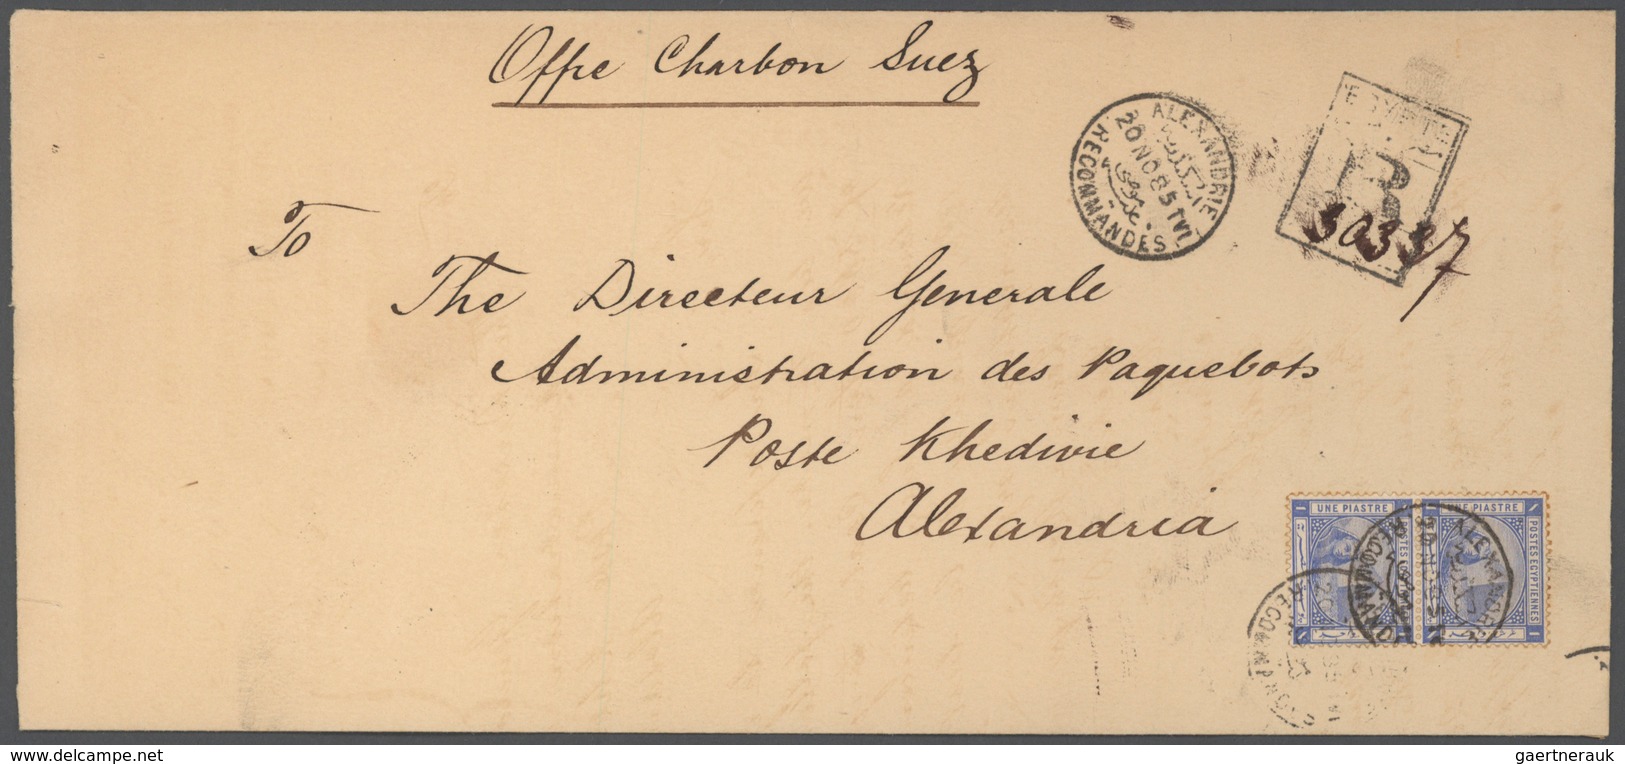 Offre Charbon Suez
ALEXANDRIE
20 NO 85 TVI
RECOMMANDES
EGYPTE
R
30337
To
The Directeur Generale
Administration des Paquebots
Poste Khedivie
Alexandria
UNE PIASTRE
UNE PIASTRE
POSTES EGYPTIENNES
ALEXANDRIE
RECOMMAND
RECOMM
delcampe.net
gaertnerauk